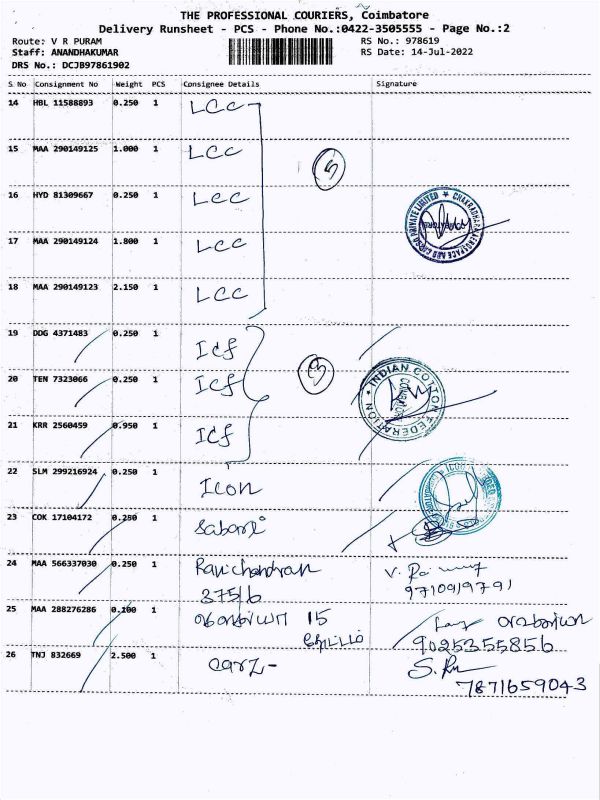 THE PROFESSIONAL COURIERS, Coimbatore
Delivery Runsheet - PCS - Phone No.:0422-3505555 - Page No.:2
Route: V R PURAM
RS No.: 978619
Staff: ANANDHAKUMAR
RS Date: 14-Jul-2022
DRS No.: DCJB97861902
S No Consignment No Weight PCS Consignee Details Signature
14 HBL 11588893 0.250 1 LCC
15 MAA 290149125 1.000 1 LCC
5
16 HYD 81309667 0.250 1 LCC
17 MAA 290149124 1.800 1 LCC
18 MAA 290149123 2.150 1 LCC
19 DDG 4371483 0.250 1 Icf
3
20 TEN 7323066 0.250 1 Icf
INDIAN COTTON FEDERATION
21 KRR 2560459 0.950 1 Icf
22 SLM 299216924 0.250 1 Icon
23 COK 17104172 0.250 1
24 MAA 566337030 0.250 1 Ravichandran
375/6
9710919791
25 MAA 288276286 0.100 1 15
9025355856
26 TNJ 832669 2.500 1
7871659043